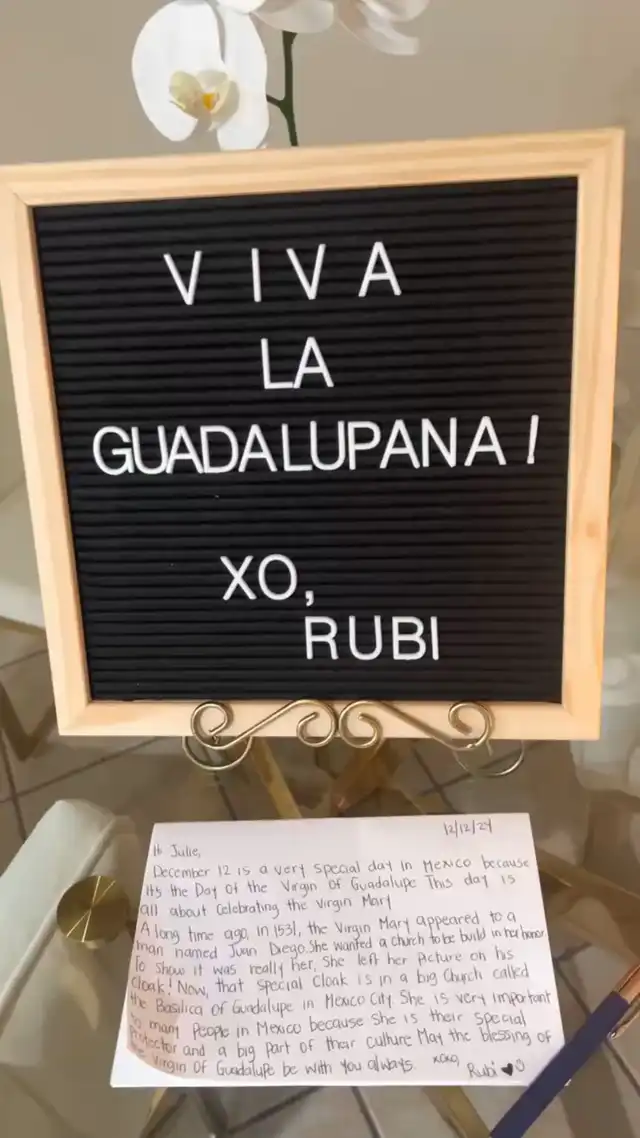 VIVA
LA
GUADALUPANA!
XO,
RUBI
12/12/24
Hi Julie,
December 12 is a very special day in MEXICO because
its the Day of the Virgin of Guadalupe This day is
all about Celebrating the Virgin Mary
A long time ago, in 1531, the Virgin Mary appeared to a
man named Juan Diego. She wanted a church to be build in her honor
To show it was really her, She left her picture on his
Cloak! Now, that special Cloak is in a big Church called
the Basilica of Guadalupe in Mexico City. She is very important
to many People in Mexico because She is their special
protector and a big part of their culture May the blessing of
the Virgin Of Guadalupe be with you always. xoxo,
Rubi